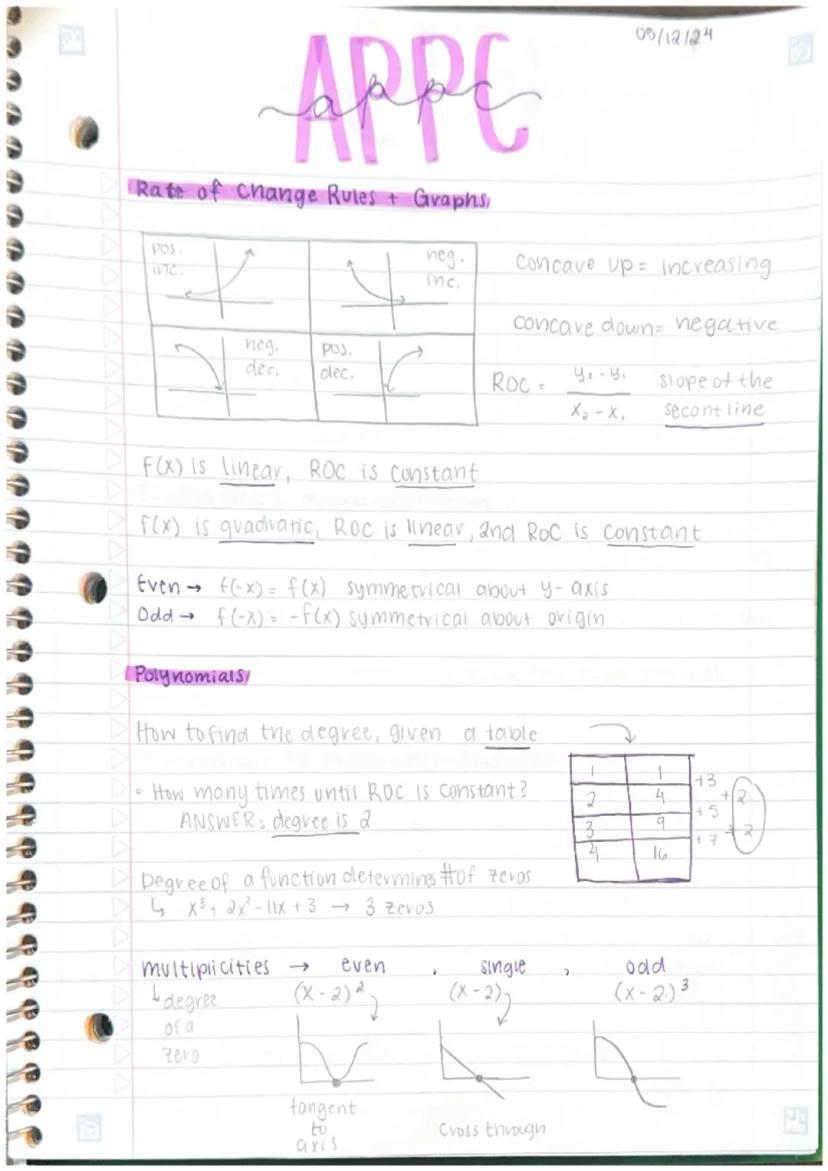 05/12/24
APPC
appc
Rate of Change Rules + Graphs
pos. inc.
neg. inc.
neg. dec.
pos. dec.
concave up = increasing
concave down = negative
ROC = y₂ - y₁ / x₂ - x₁ slope of the secont line
f(x) is linear, ROC is constant
f(x) is quadratic, ROC is linear, 2nd ROC is constant
Even → f(-x) = f(x) symmetrical about y-axis
Odd → f(-x) = -f(x) symmetrical about origin
Polynomials
How to find the degree, given a table
1 1
2 4
3 9
4 16
+3
+5
+7
+2
+2
• How many times until ROC is constant?
ANSWER: degree is 2
Degree of a function determines # of zeros
↳ x³ + 2x² - 11x + 3 → 3 zeros
multiplicities → even, single, odd
↳ degree of a zero
(x-2)²
(x-2)
(x-2)³
tangent to axis
cross through